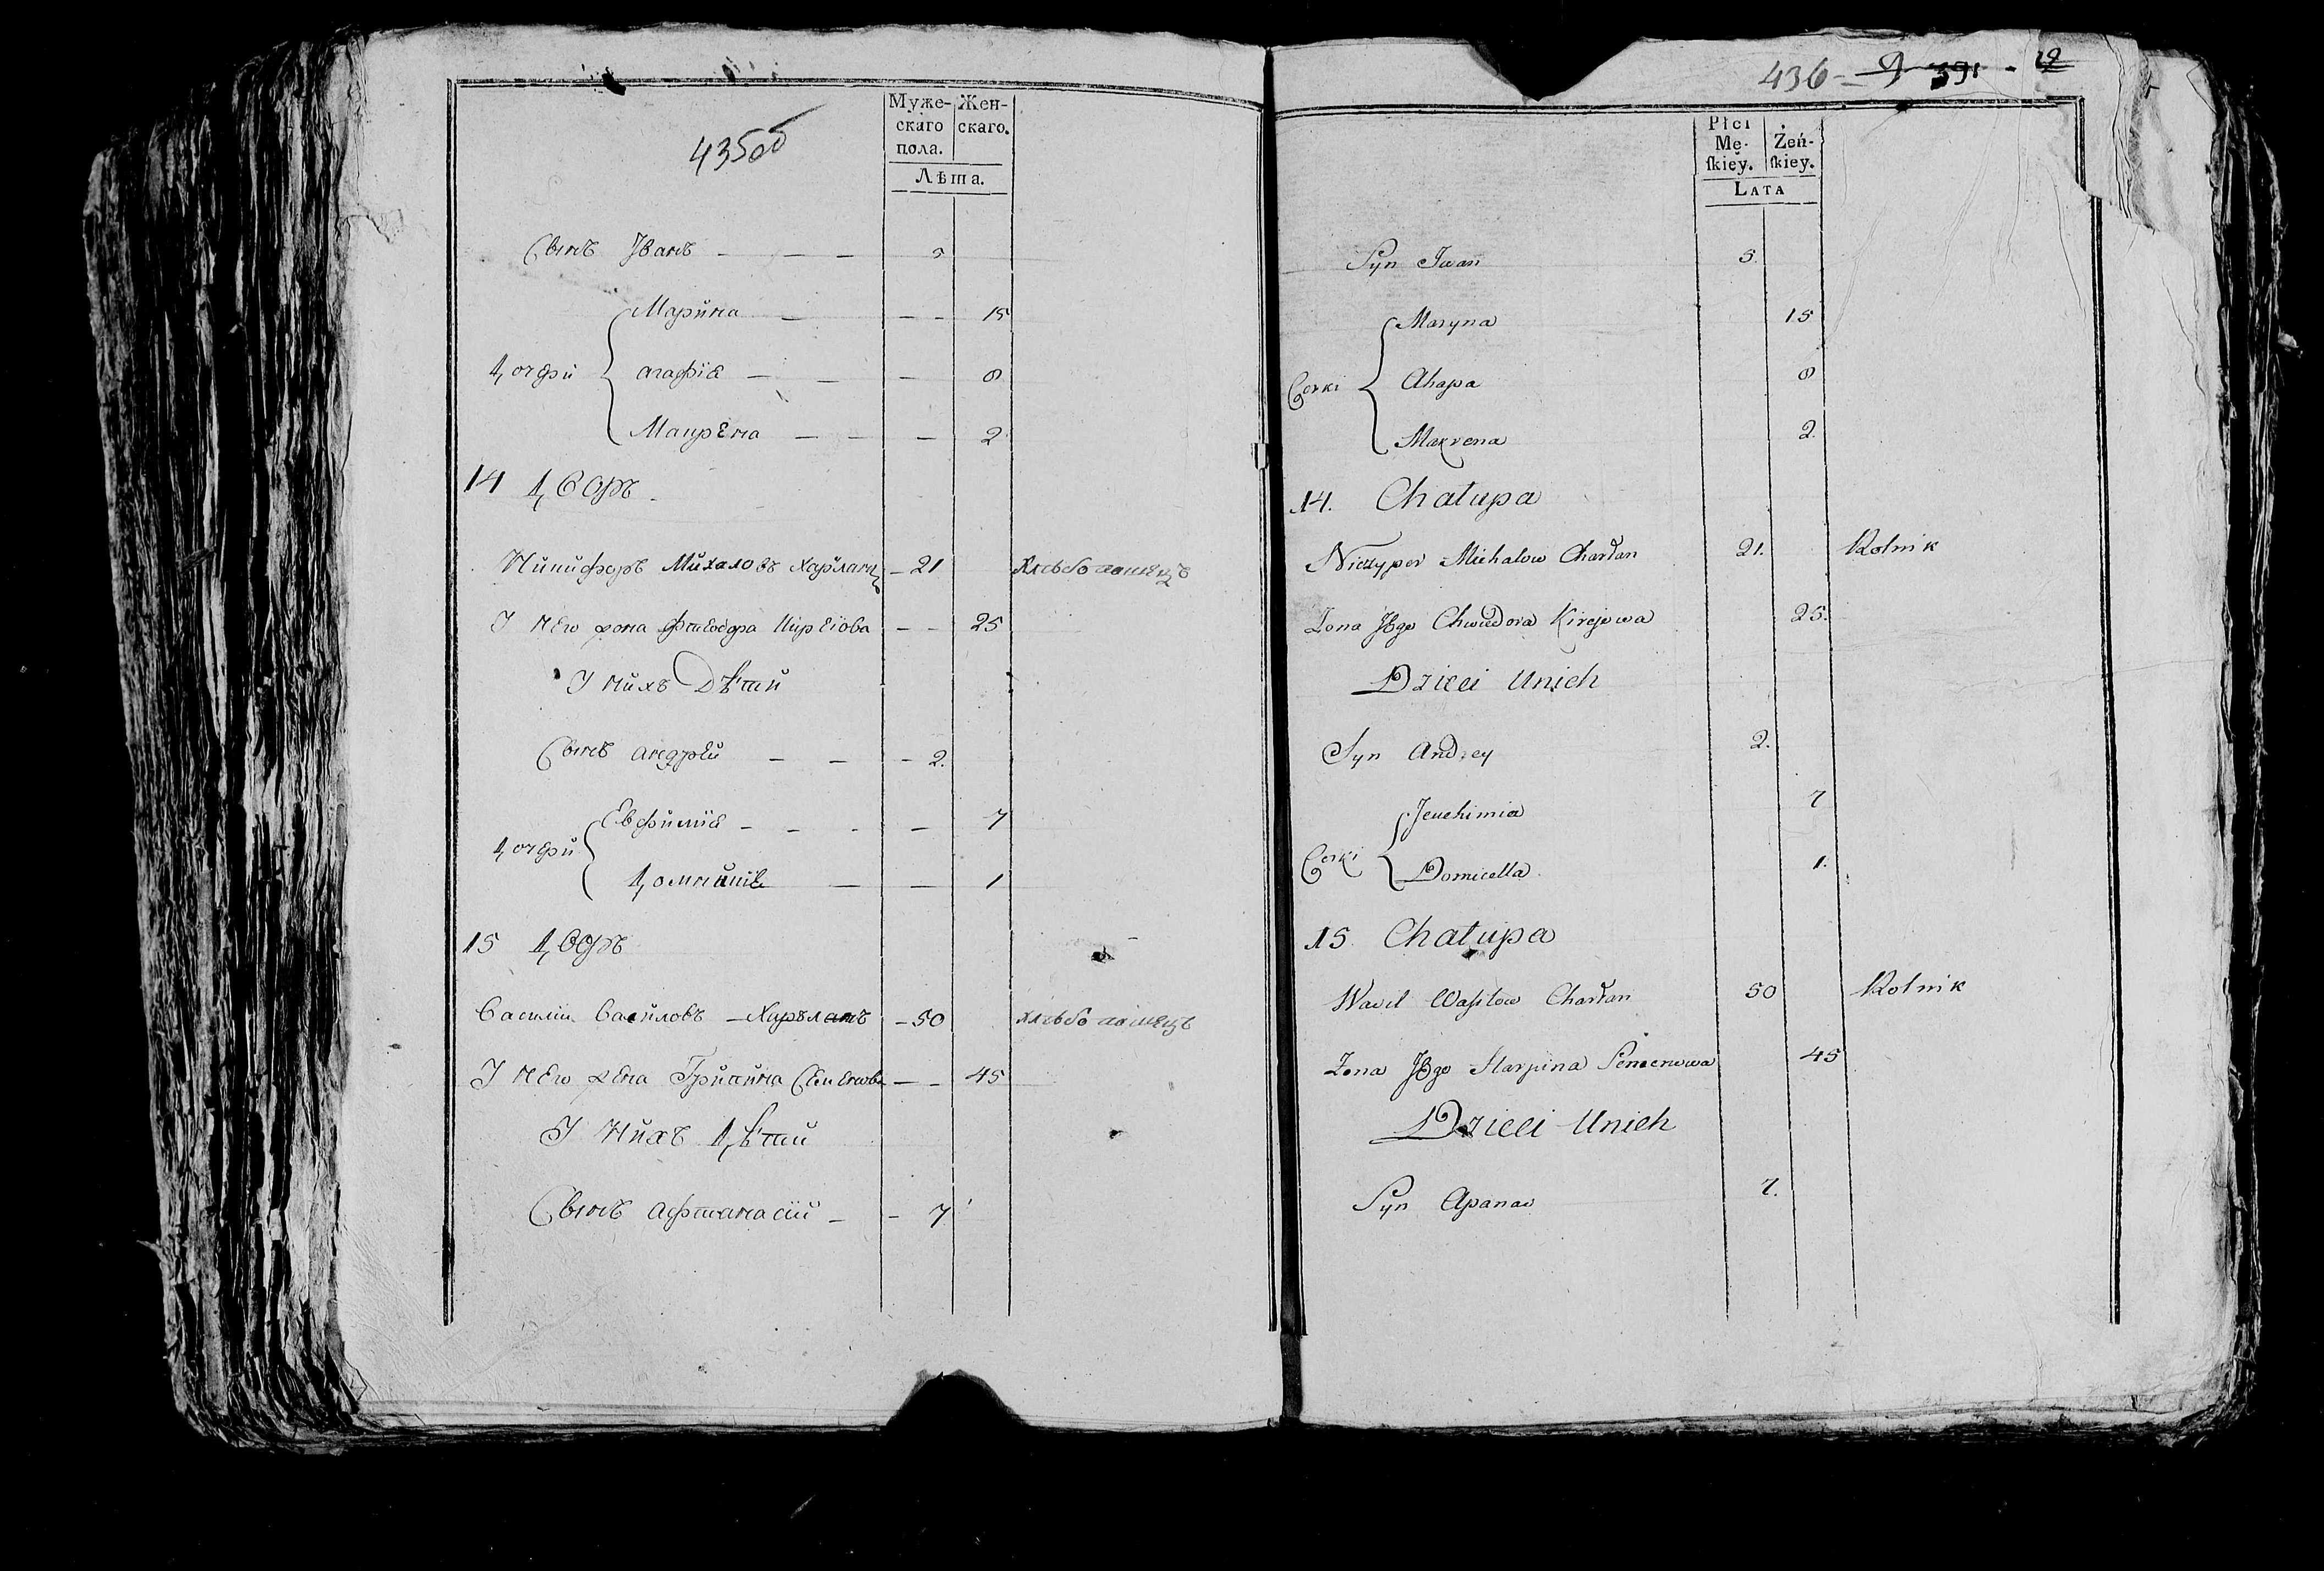 435об
Муже- Жен-
скаго скаго.
пола.
Лѣта.
Сынъ Иванъ — — — 5
Марина — — — 15
Дочери
Агафiя — — — 8
Макрена — — — 2
14 Дворъ
Никифоръ Михаловъ Харланъ — 21 хлебопашецъ
У него жена Фтеодора Кирѣiова — — 25
У нихъ Дѣти
Сынъ Андрѣй — — — 2.
Евфимiя — — — 7
Дочери
Домникiя — — 1
15 Дворъ
Василiи Василовъ — Харъланъ — 50 хлебопашецъ
У него жена Грипина Сѣмѣнова — — 45
У нихъ Дѣти
Сынъ Афтанасiй — — 7
436 - 9 391 - 19
Płci
Mę- Żeń-
ſkiey. ſkiey.
LATA
Syn Iwan 5.
Maryna 15
Corki
Ahapa 8
Makrena 2.
14. Chałupa
Niczypor Michałow Charłan 21. Rolnik
Zona Jego Chwiedora Kirejowa 25.
Dzieci Unich
Syn Andrey 2.
Jeuchimia 7
Corki
Domicella 1.
15. Chałupa
Wasil Wasilow Charłan 50 Rolnik
Zona Jego Harpina Semenowa 45
Dzieci Unich
Syn Apanas 7.